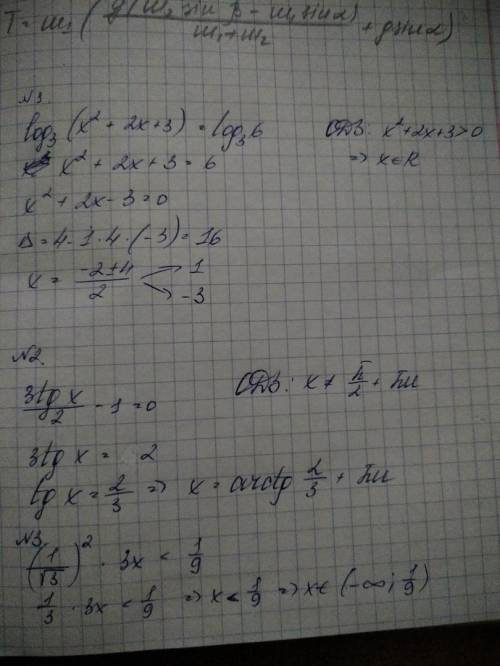 T = m₁ (g(m₂ sin β - m₁ sin α) / (m₁ + m₂) + g sin α)
№1.
log₃(x² + 2x + 3) = log₃6 ОДЗ: x² + 2x + 3 > 0
x² + 2x + 3 = 6 => x ∈ R
x² + 2x - 3 = 0
D = 4 - 1 · 4 · (-3) = 16
x = (-2 ± 4) / 2 1
-3
№2.
3tg x / 2 - 1 = 0 ОДЗ: x ≠ π/2 + πn
3tg x = 2
tg x = 2/3 => x = arctg 2/3 + πn
№3.
(1/√3)² · 3x < 1/9
1/3 · 3x < 1/9 => x < 1/9 => x ∈ (-∞; 1/9)